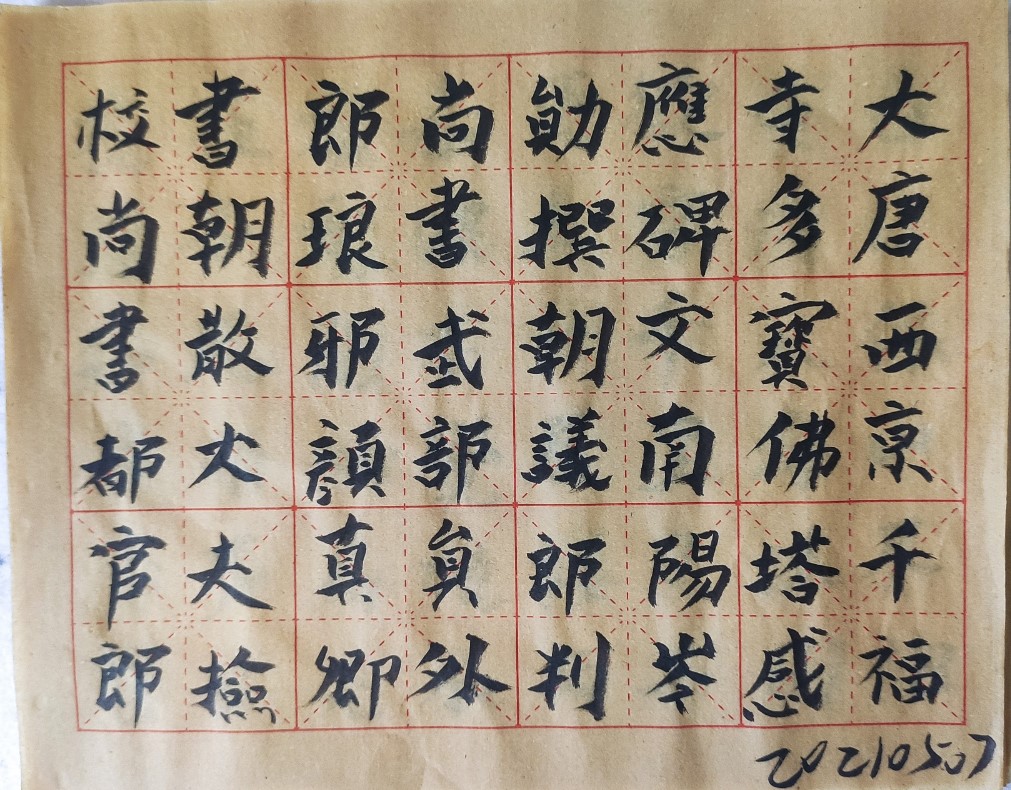 大唐西京千福
寺多寶佛塔感
應碑文南陽岑
勛撰朝議郎判
尚書武部員外
郎琅邪顏真卿
書朝散大夫撿
校尚書都官郎
20210507